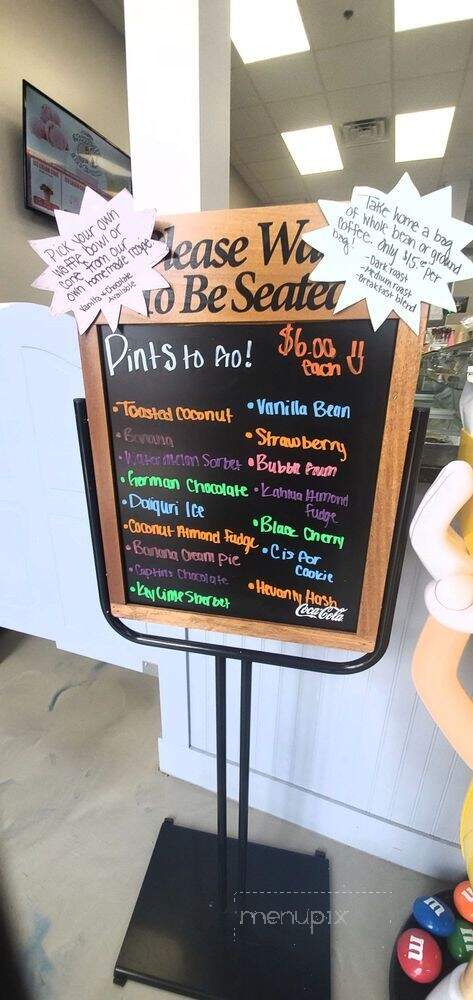 Pick your own
waffle bowl or
cone from our
own homemade recipe!
Vanilla + Chocolate
Available
Take home a bag
of whole bean or ground
coffee. Only $15.00 per
bag!
-Dark roast
-Medium roast
-Breakfast blend
Please Wa
To Be Seated
Pints to Go!
$6.00
each
• Toasted Coconut
• Banana
• Watermelon Sorbet
• German Chocolate
• Daiquri Ice
• Coconut Almond Fudge
• Banana Cream Pie
• Captins Chocolate
• Key Lime Sherbet
• Vanilla Bean
• Strawberry
• Bubble Gum
• Kahlua Almond
Fudge
• Black Cherry
• C is for
Cookie
• Hevanly Hash
Coca-Cola
menupix
m
m
m